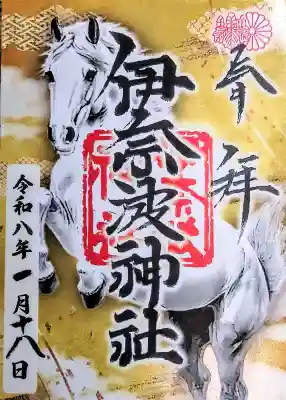 奉拝
伊奈波神社
令和八年一月十八日